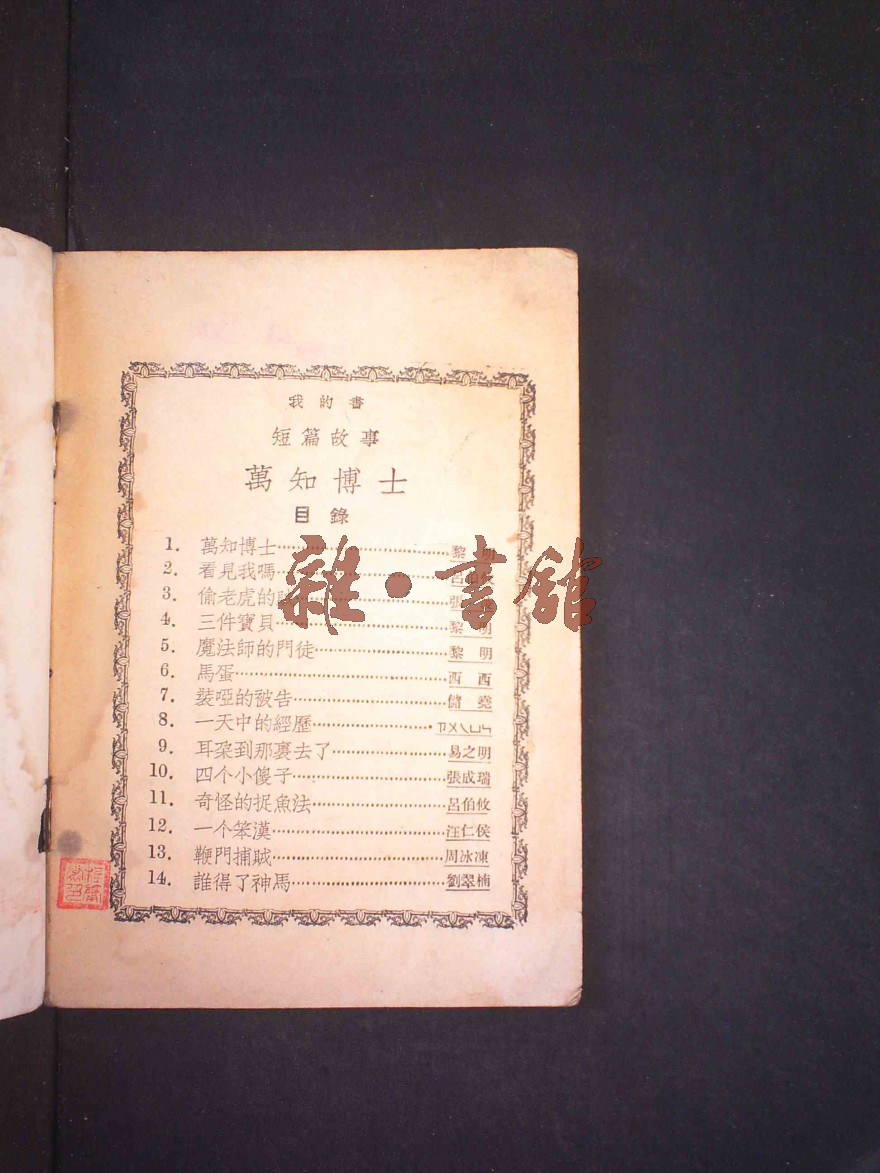 我的書
短篇故事
萬知博士
目錄
1. 萬知博士 黎明
2. 看見我嗎
3. 偷老虎的 張
4. 三件寶貝 黎明
5. 魔法師的門徒 黎明
6. 馬蛋 西西
7. 裝啞的被告 儲
8. 一天中的經歷
9. 耳朶到那裏去了 易之明
10. 四个小傻子 張成瑞
11. 奇怪的捉魚法 呂伯攸
12. 一个笨漢 汪仁侯
13. 鞭門捕賊 周冰凍
14. 誰得了神馬 劉翠楠
雜·書館